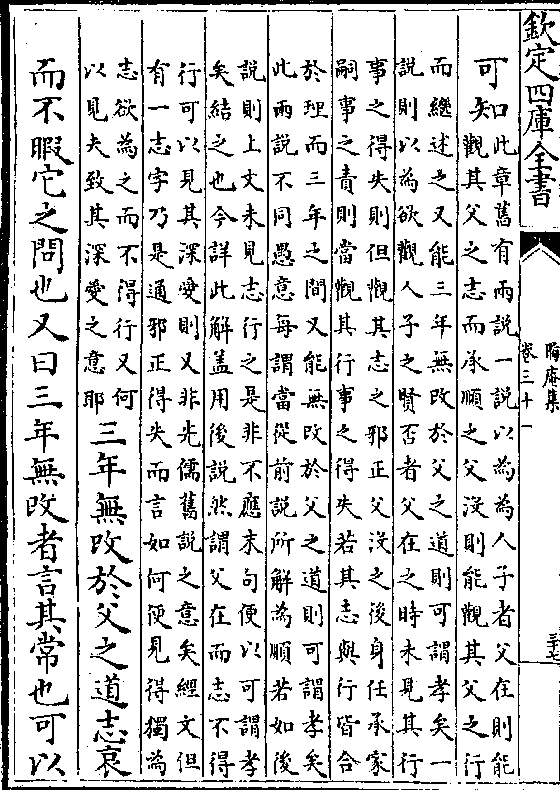 欽定四庫全書
晦庵集
卷三十一
三十七
可知
此章舊有兩說一說以為為人子者父在則能
觀其父之志而承順之父沒則能觀其父之行
而繼述之又能三年無改於父之道則可謂孝矣一
說則以為欲觀人子之賢否者父在之時未見其行
事之得失則但觀其志之邪正父沒之後身任承家
嗣事之責則當觀其行事之得失若其志與行皆合
於理而三年之間又能無改於父之道則可謂孝矣
此兩說不同愚意每謂當從前說所解為順若如後
說則上文未見志行之是非不應末句便以可謂孝
矣結之也今詳此解蓋用後說然謂父在而志不得
行可以見其深愛則又非先儒舊說之意矣經文但
有一志字乃是通邪正得失而言如何便見得獨為
志欲為之而不得行又何
以見夫致其深愛之意耶
三年無改於父之道志哀
而不暇它之問也又曰三年無改者言其常也可以